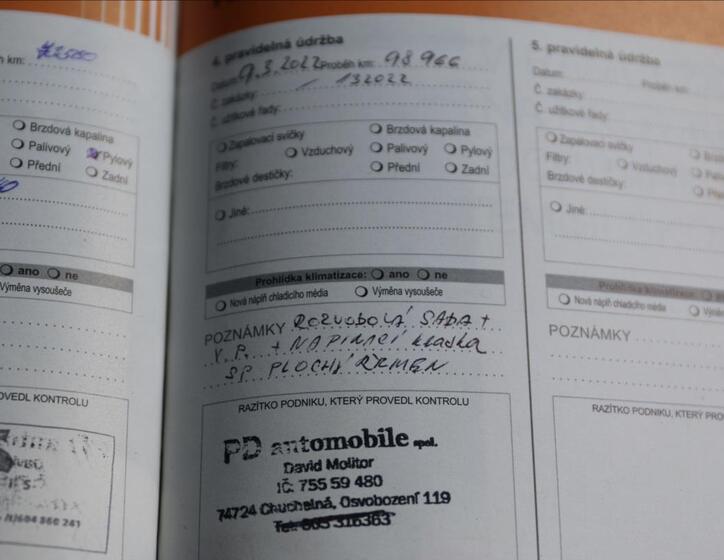 ěh km: 72500
Brzdová kapalina
Palivový Pylový
Přední Zadní
ano ne
Výměna vysoušeče
ROVEDL KONTROLU
4. pravidelná údržba
Datum: 9.3.2022 Proběh km: 98 966
Č. zakázky: / 132022
Č. užitkové řady:
Zapalovací svíčky Brzdová kapalina
Filtry: Vzduchový Palivový Pylový
Brzdové destičky: Přední Zadní
Jiné:
Prohlídka klimatizace: ano ne
Nová náplň chladicího média Výměna vysoušeče
POZNÁMKY ROZVODOVÁ SADA +
V.P. + NAPINACÍ kladka
SP. PLOCHÝ ŘEMEN
RAZÍTKO PODNIKU, KTERÝ PROVEDL KONTROLU
PD automobile spol.
David Molitor
IČ: 755 59 480
74724 Chuchelná, Osvobození 119
Tel: 605 316363
5. pravidelná údržba
Datum: Proběh km:
Č. zakázky:
Č. užitkové řady:
Zapalovací svíčky Brzd
Filtry: Vzduchový Paliv
Brzdové destičky: Před
Jiné:
Prohlídka klimatizace:
Nová náplň chladicího média Výměn
POZNÁMKY
RAZÍTKO PODNIKU, KTERÝ PROV